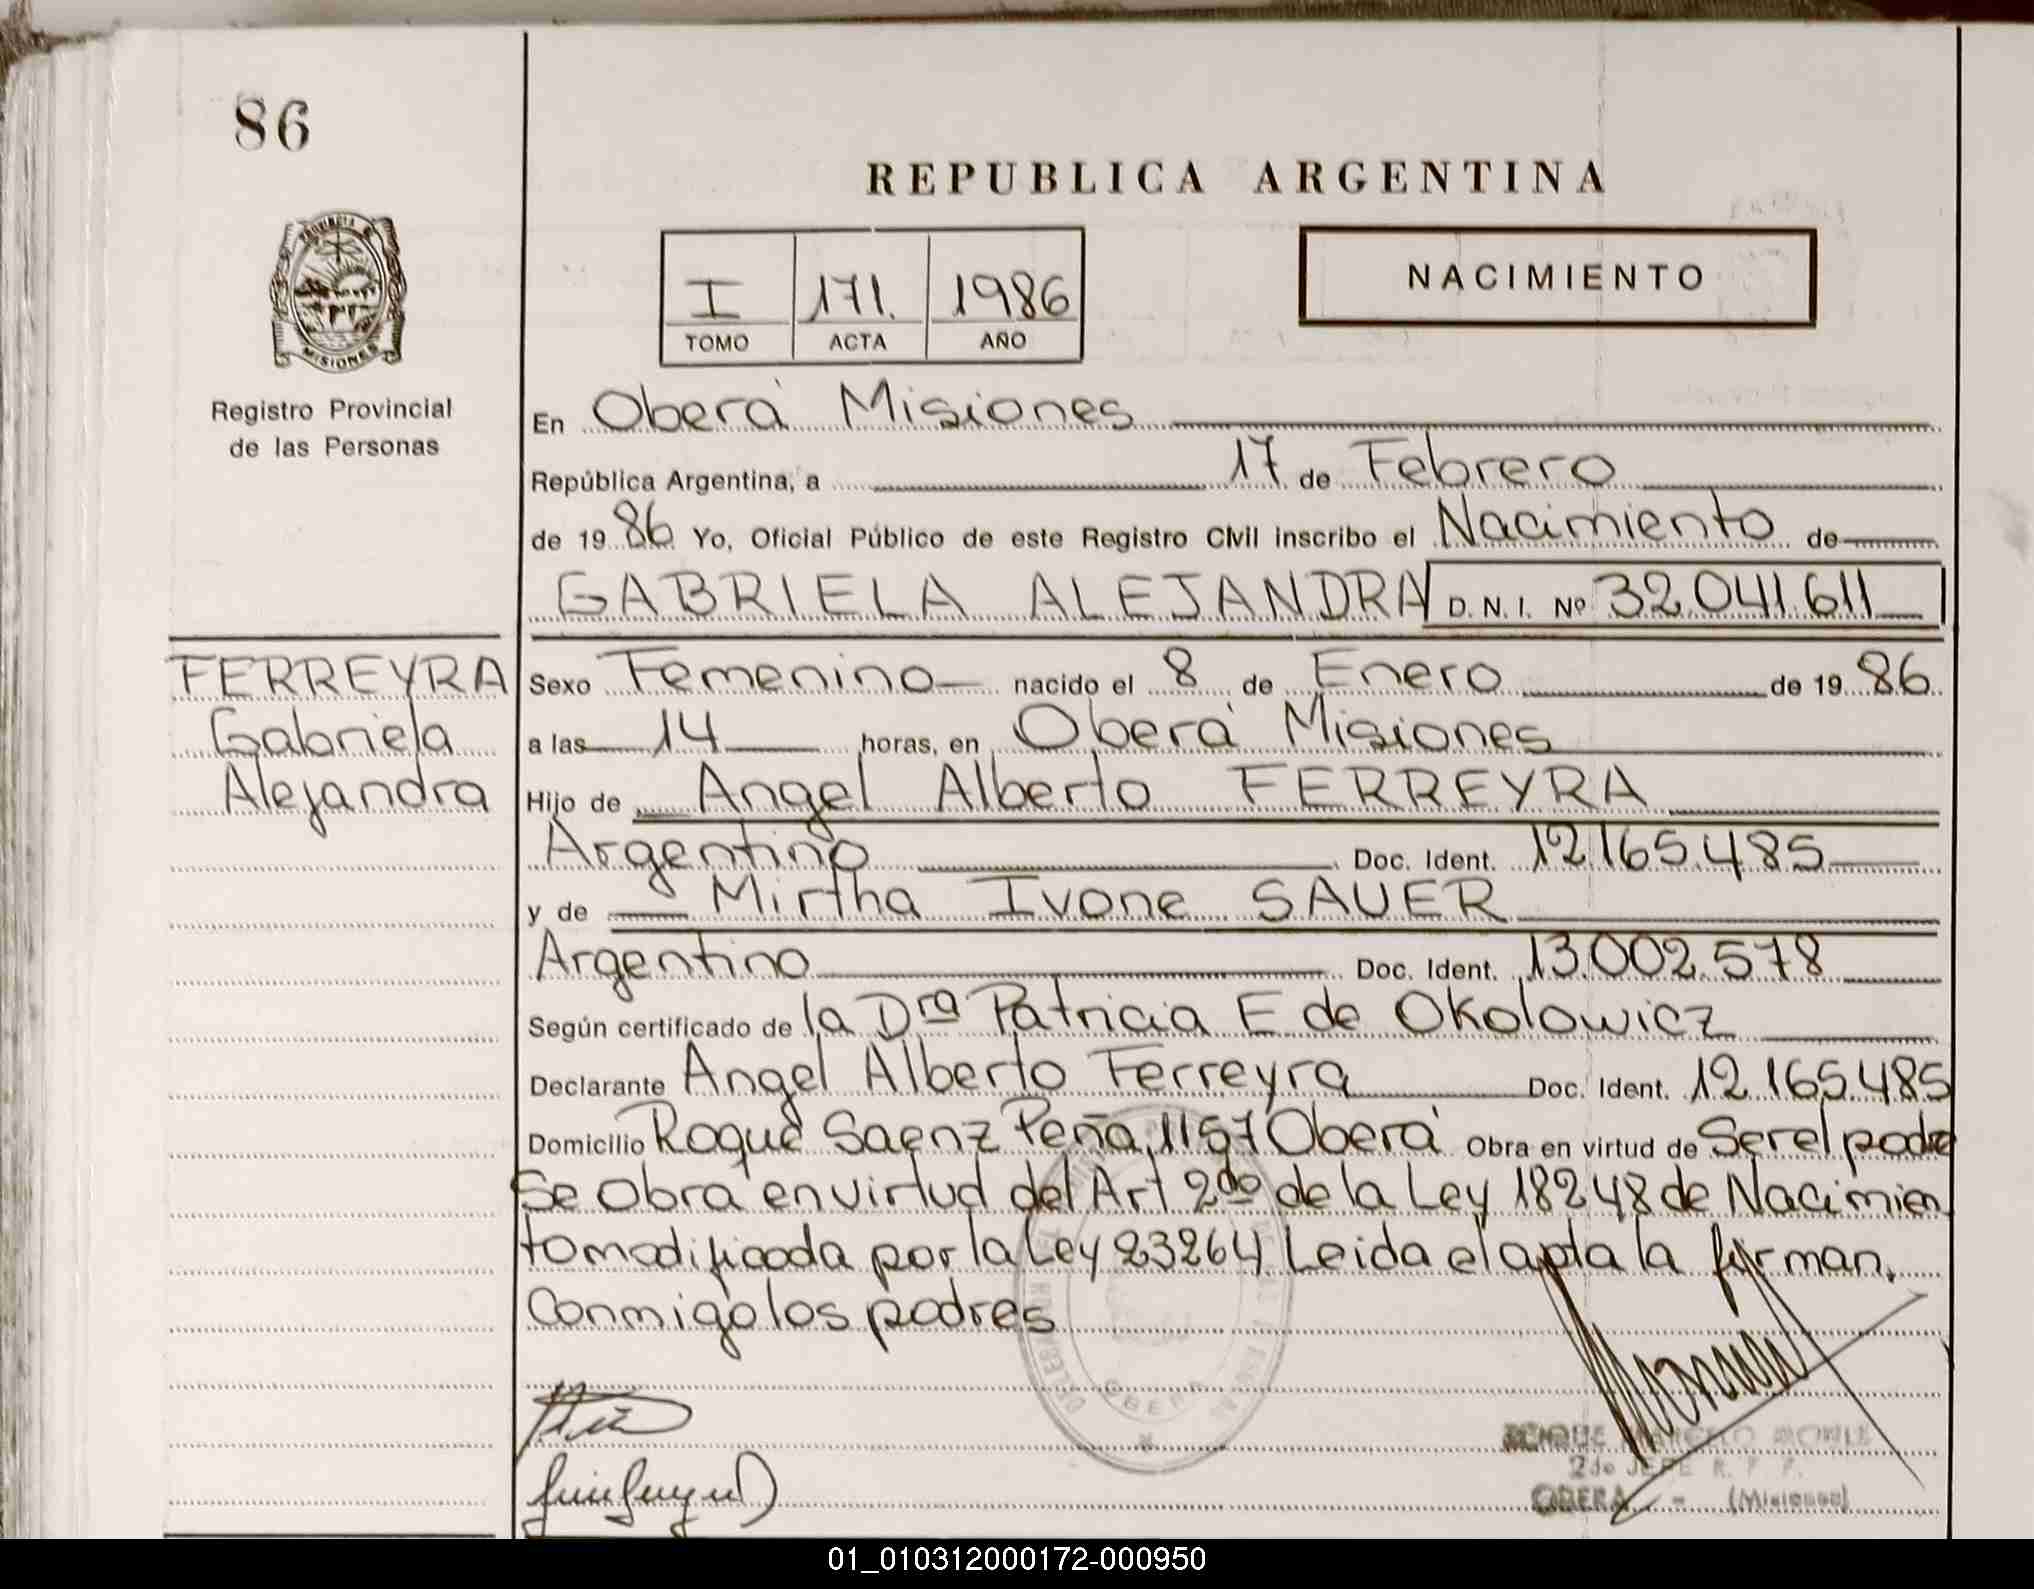 86
REPUBLICA ARGENTINA
PROVINCIA MISIONES
I 171. 1986
TOMO ACTA AÑO
NACIMIENTO
Registro Provincial
de las Personas
En Oberá Misiones
República Argentina, a 17 de Febrero
de 1986 Yo, Oficial Público de este Registro Civil inscribo el Nacimiento de
GABRIELA ALEJANDRA D. N. I. Nº 32.041.611
FERREYRA
Gabriela
Alejandra
Sexo Femenino nacido el 8 de Enero de 1986
a las 14 horas, en Oberá Misiones
Hijo de Angel Alberto FERREYRA
Argentino Doc. Ident. 12.165.485
y de Mirtha Ivone SAUER
Argentino Doc. Ident. 13.002.578
Según certificado de la Dra Patricia E de Okolowicz
Declarante Angel Alberto Ferreyra Doc. Ident. 12.165.485
Domicilio Roque Saenz Peña 1157 Oberá Obra en virtud de Ser el padre
Se Obra en virtud del Art 2do de la Ley 18248 de Nacimien
to modificada por la Ley 23264 Leida el acta la firman.
Conmigo los padres
OBERA
ROQUE MARCELO
2do JEFE R. P. P.
OBERA - (Misiones)
01_010312000172-000950